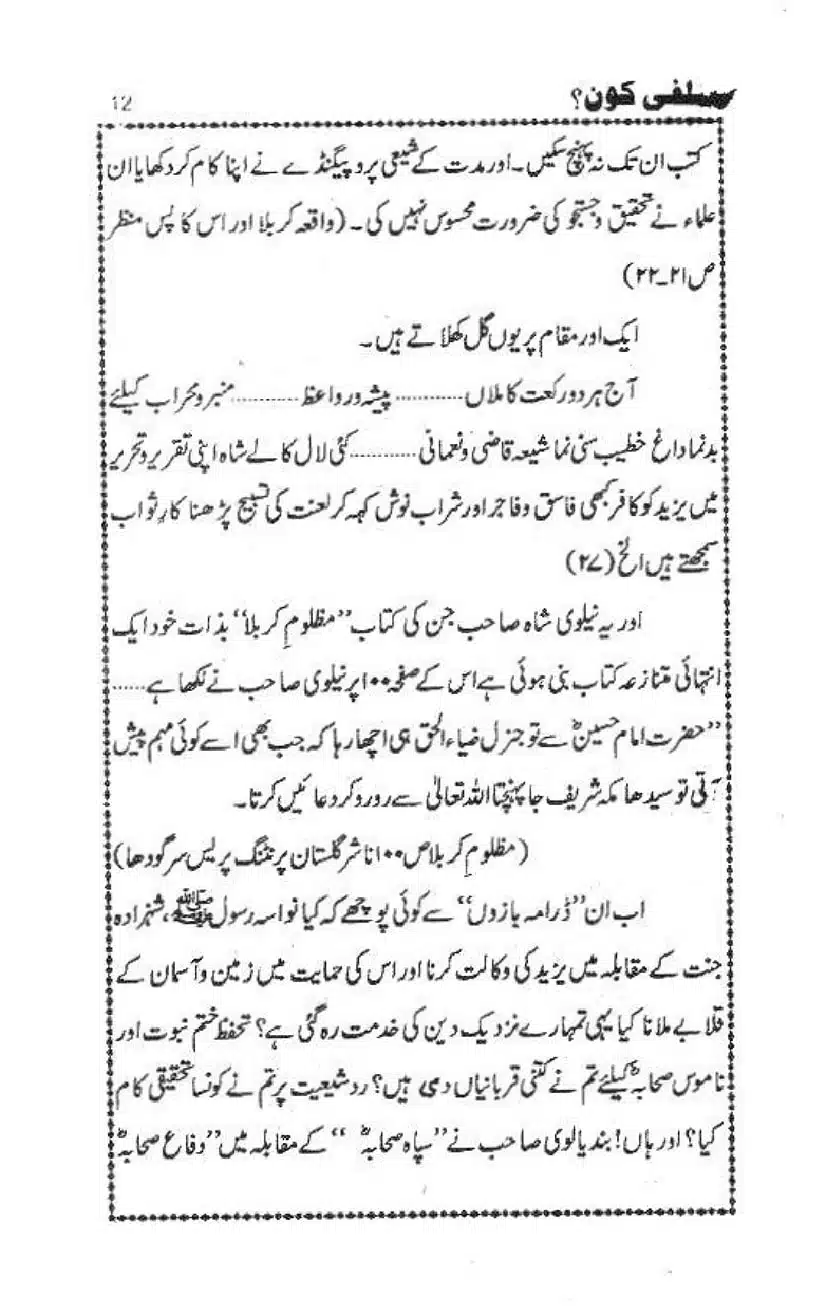 سلفی کون؟
12
کتب ان تک نہ پہنچ سکیں۔ اور مدت کے شیعی پروپیگنڈے نے اپنا کام کر دکھایا ان
علماء نے تحقیق و جستجو کی ضرورت محسوس نہیں کی۔ (واقعہ کربلا اور اس کا پس منظر
ص۲۱۔۲۲)
ایک اور مقام پر یوں گل کھلاتے ہیں۔
آج ہر دو رکعت کا ملاں ............ پیشہ ور واعظ ............ منبر و محراب کیلئے
بدنما داغ خطیب سنی نما شیعہ قاضی و نعمانی ............ کئی لال کالے شاہ اپنی تقریر و تحریر
میں یزید کو کافر کبھی فاسق و فاجر اور شراب نوش کہہ کر لعنت کی تسبیح پڑھنا کارِ ثواب
سمجھتے ہیں الخ (۲۷)
اور یہ نیلوی شاہ صاحب جن کی کتاب ”مظلومِ کربلا“ بذات خود ایک
انتہائی متنازعہ کتاب بنی ہوئی ہے اس کے صفحہ ۱۰۰ پر نیلوی صاحب نے لکھا ہے ......
”حضرت امام حسینؓ سے تو جنرل ضیاء الحق ہی اچھا رہا کہ جب بھی اسے کوئی مہم پیش
آتی تو سیدھا مکہ شریف جا پہنچتا اللہ تعالیٰ سے رو رو کر دعائیں کرتا۔
(مظلومِ کربلا ص ۱۰۰ ناشر گلستان پرنٹنگ پریس سرگودھا)
اب ان ”ڈرامہ بازوں“ سے کوئی پوچھے کہ کیا نواسہ رسول ﷺ، شہزادہ
جنت کے مقابلہ میں یزید کی وکالت کرنا اور اس کی حمایت میں زمین و آسمان کے
قلابے ملانا کیا یہی تمہارے نزدیک دین کی خدمت رہ گئی ہے؟ تحفظ ختم نبوت اور
ناموس صحابہؓ کیلئے تم نے کتنی قربانیاں دی ہیں؟ رد شیعیت پر تم نے کونسا تحقیقی کام
کیا؟ اور ہاں! بندیالوی صاحب نے ”سپاہ صحابہؓ“ کے مقابلہ میں ”دفاع صحابہؓ